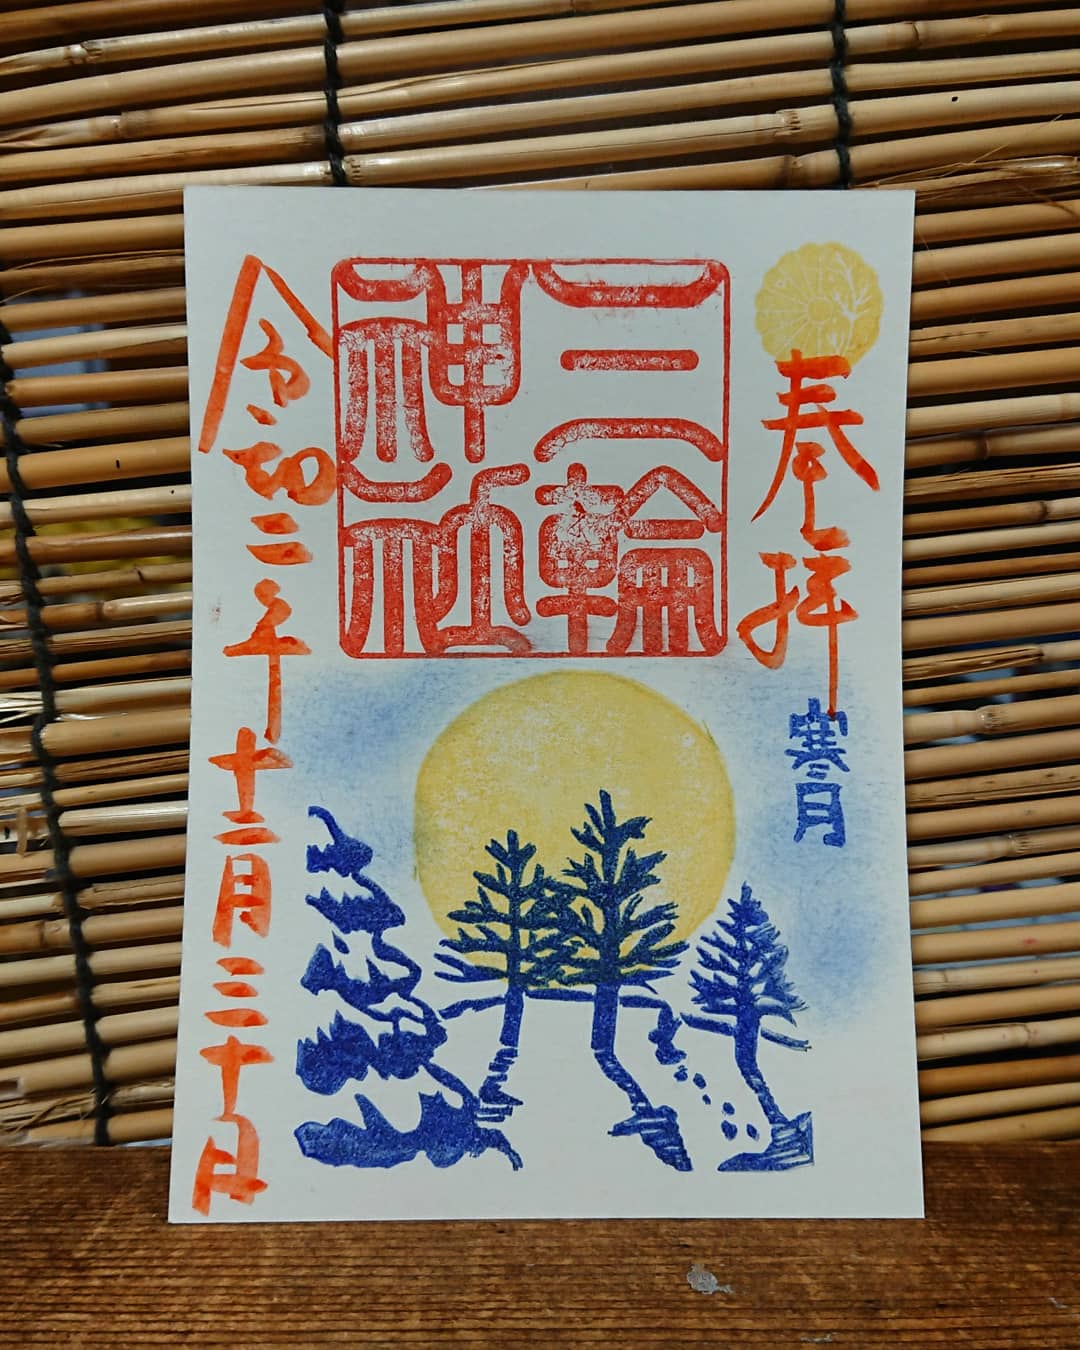 奉拝
寒月
三輪
神社
令和二年十二月三十日